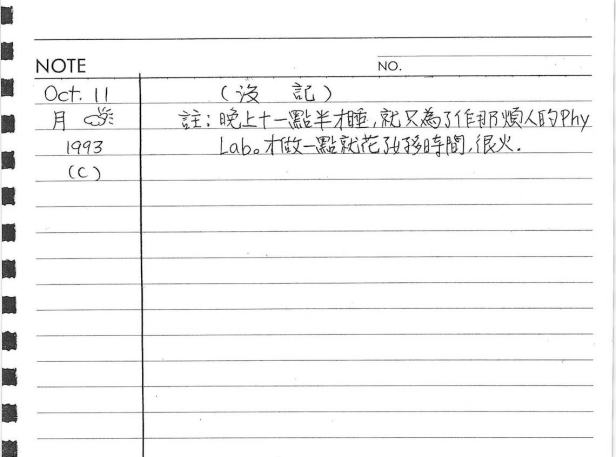 NOTE
NO.
Oct. 11
(沒 記)
月
註：晚上十一點半才睡，就只為了作那煩人的Phy
1993
Lab。才做一點就花好多時間，很火.
(C)